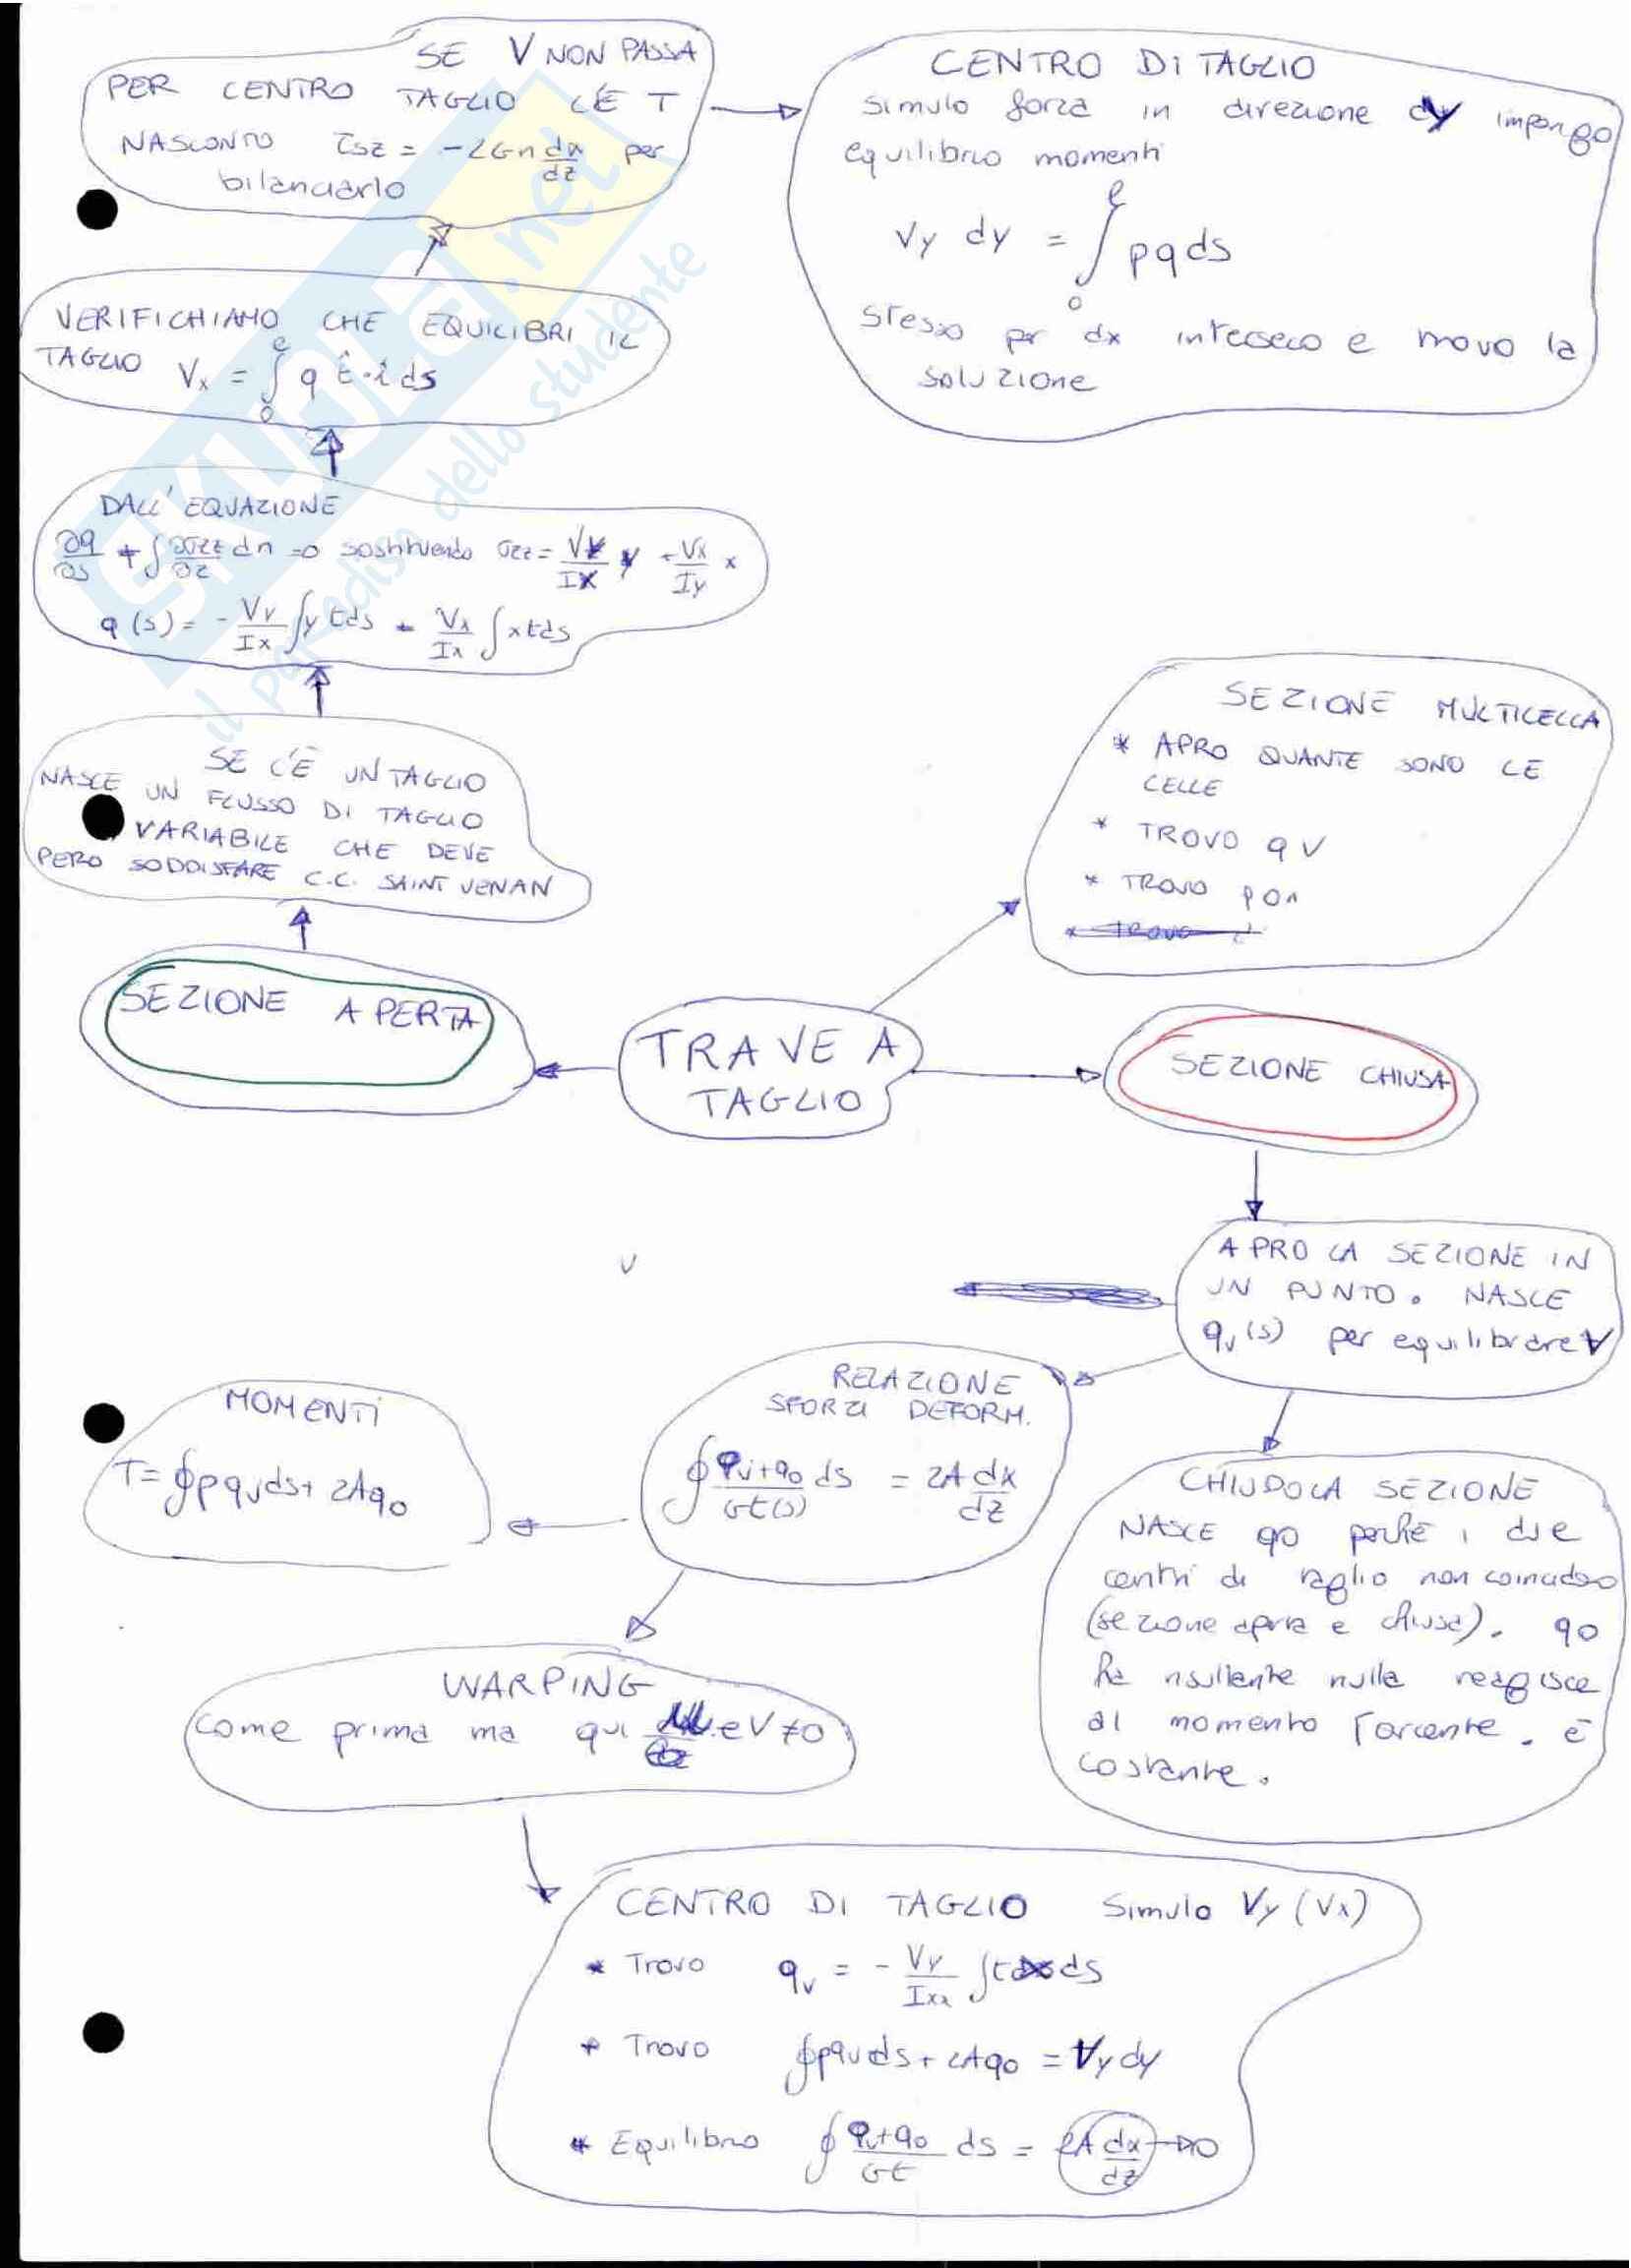 SE V NON PASSA
PER CENTRO TAGLIO C'È T
NASCONTO τsz = -2Gn dα/dz per
bilanciarlo
CENTRO DI TAGLIO
Simulo forza in direzione dy impongo
equilibrio momenti
Vy dy = ∫₀ˡ pqds
Stesso pr dx interseco e trovo la
soluzione
VERIFICHIAMO CHE EQUILIBRI IL
TAGLIO Vx = ∫₀ˡ q t̂·î ds
DALL'EQUAZIONE
∂q/∂s + ∫ ∂σzz/∂z dn =0 sostituendo σzz = Vy/Ix y + Vx/Iy x
q(s) = - Vy/Ix ∫y tds - Vx/Ix ∫xtds
SE C'È UN TAGLIO
NASCE UN FLUSSO DI TAGLIO
VARIABILE CHE DEVE
PERO SODDISFARE C.C. SAINT VENAN
SEZIONE MULTICELLA
* APRO QUANTE SONO LE
CELLE
* TROVO qV
* TROVO
SEZIONE APERTA
TRAVE A
TAGLIO
SEZIONE CHIUSA
APRO LA SEZIONE IN
UN PUNTO. NASCE
qv(s) per equilibrare V
V
RELAZIONE
SFORZI DEFORM.
∮ qv+q0/Gt(s) ds = 2A dα/dz
MOMENTI
T= ∮pqvds+ 2Aq0
CHIUDO LA SEZIONE
NASCE q0 perché i due
centri di taglio non coincidono
(sezione aperta e chiusa). q0
ha risultante nulla reagisce
al momento Torcente. è
costante.
WARPING
Come prima ma qui e V≠0
CENTRO DI TAGLIO Simulo Vy (Vx)
* Trovo qv = - Vy/Ixx ∫t ds
* Trovo ∮pqvds+ 2Aq0 = Vydy
* Equilibrio ∮ qv+q0/Gt ds = 2A dα/dz → 0
SKUOLA.net
il paradiso dello studente